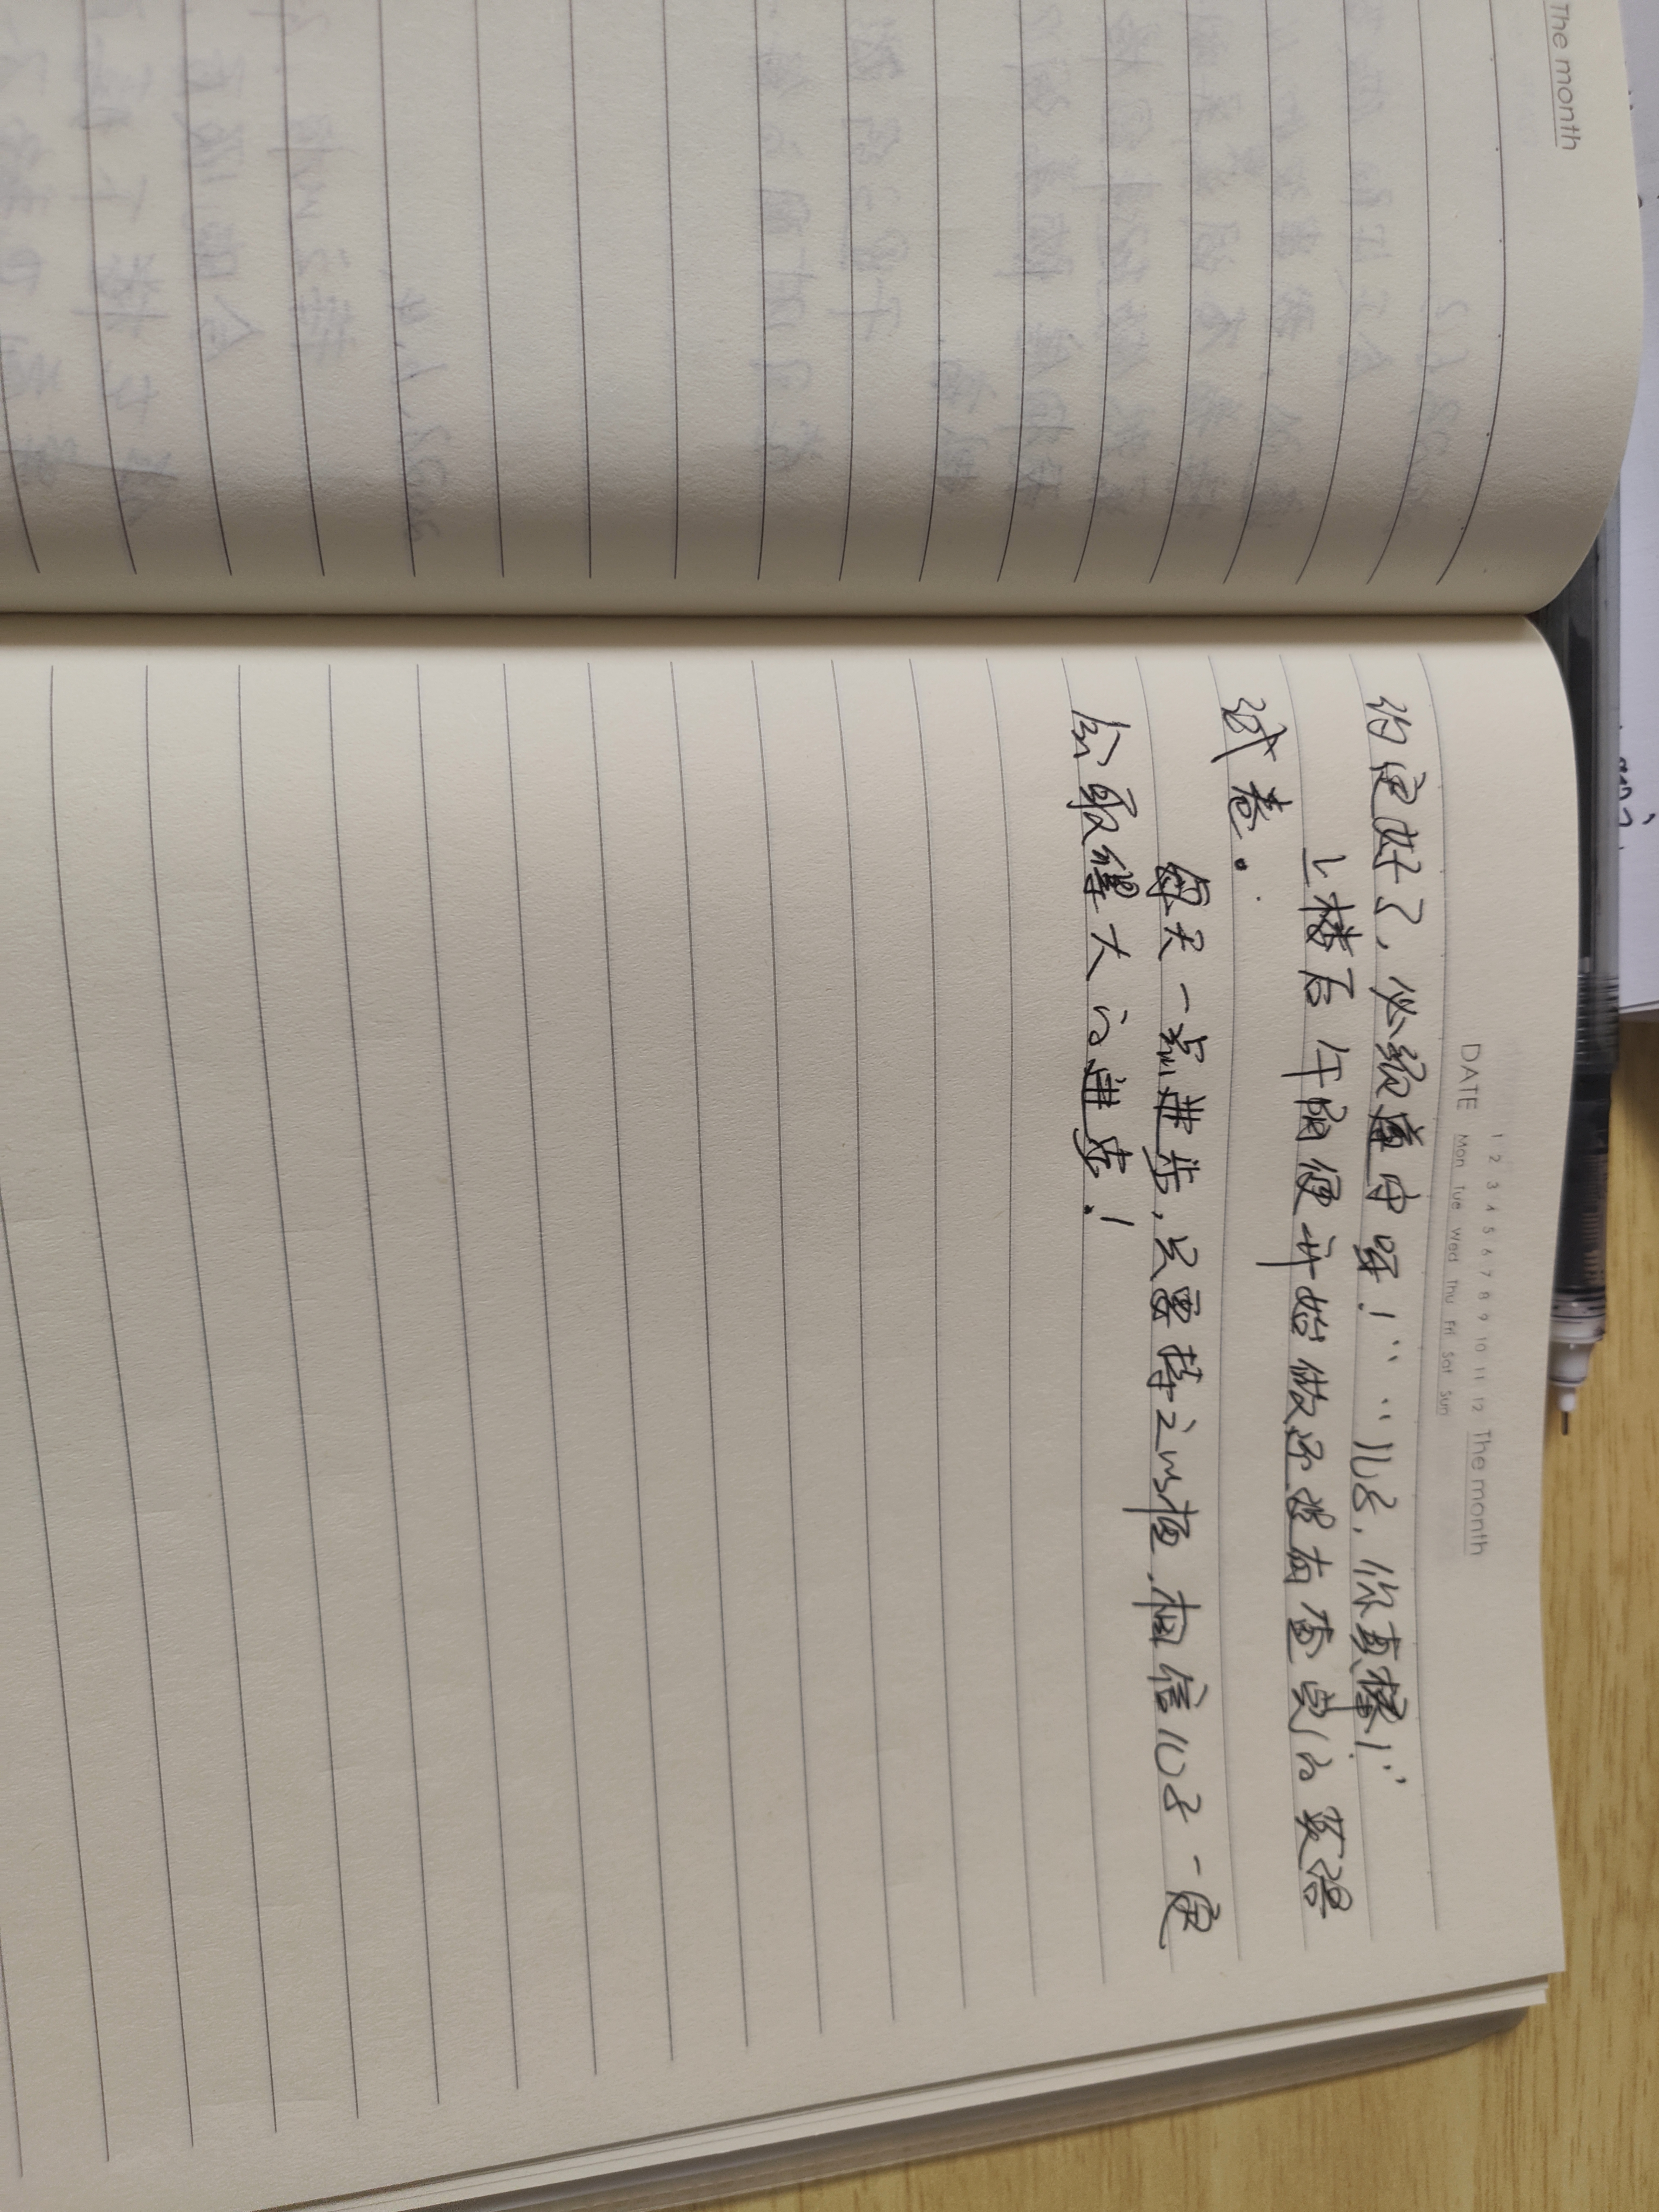 The month
1 2 3 4 5 6 7 8 9 10 11 12 The month
DATE Mon Tue Wed Thu Fri Sat Sun
约定好了，必须遵守呀！” “儿子，你真棒！”
上楼后午阳便开始做还没有查完的英语
试卷。
每天一点进步，只要持之以恒，相信儿子一定
会取得大的进步！